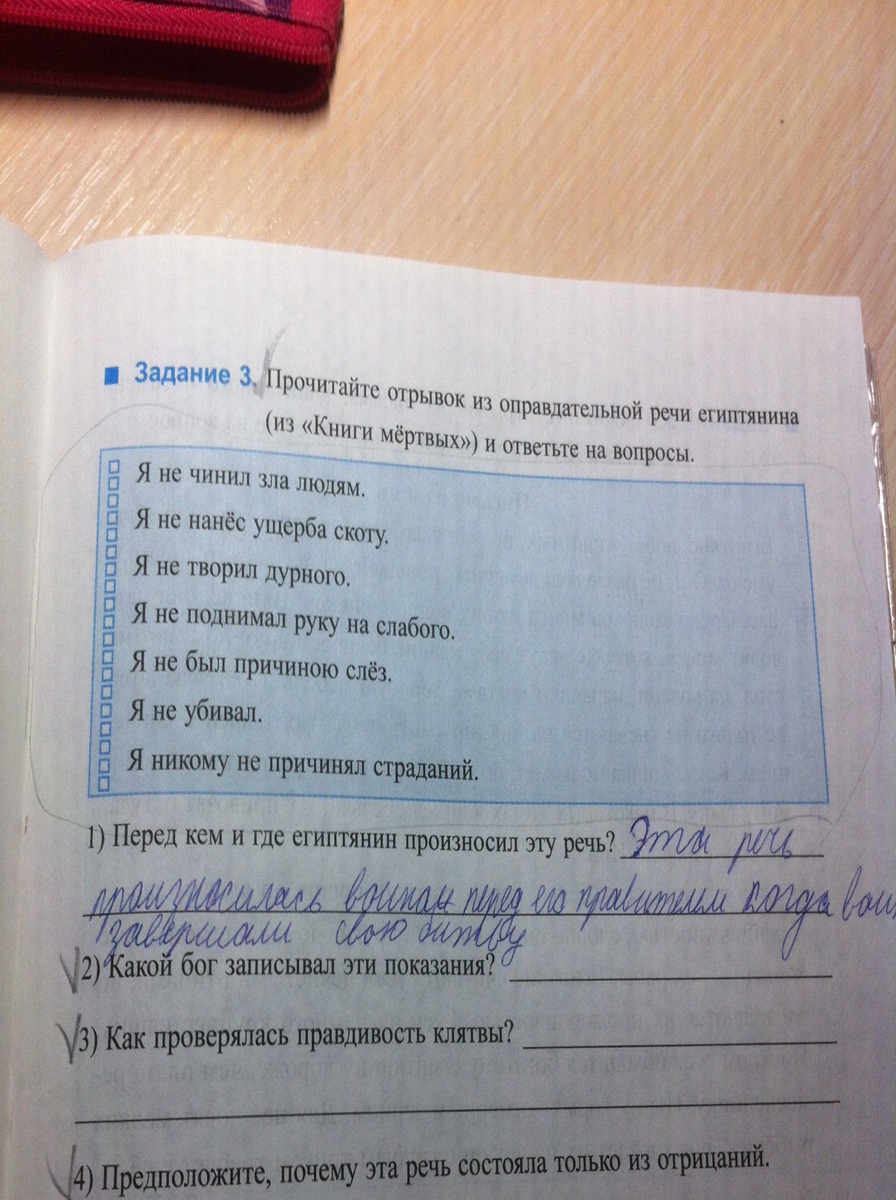 Задание 3. Прочитайте отрывок из оправдательной речи египтянина
(из «Книги мёртвых») и ответьте на вопросы.
Я не чинил зла людям.
Я не нанёс ущерба скоту.
Я не творил дурного.
Я не поднимал руку на слабого.
Я не был причиною слёз.
Я не убивал.
Я никому не причинял страданий.
1) Перед кем и где египтянин произносил эту речь? Эта речь
произносилась воинам перед его правителем когда вои
завершали свою битву
2) Какой бог записывал эти показания?
3) Как проверялась правдивость клятвы?
4) Предположите, почему эта речь состояла только из отрицаний.